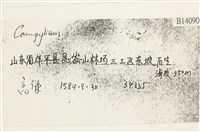 B14090
Campylium
山东省牟平县昆嵛山林场三工区东坡 石生
海拔 350m
高谦 1984.9.30 34335